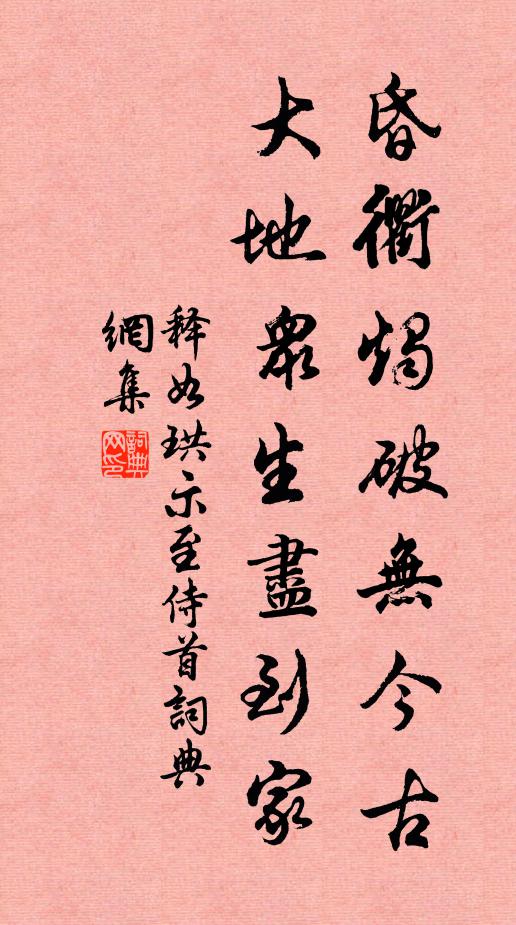 昏衢燭破無今古
大地眾生盡到家
释如珙示至侍首詞典
網集
詞典網印